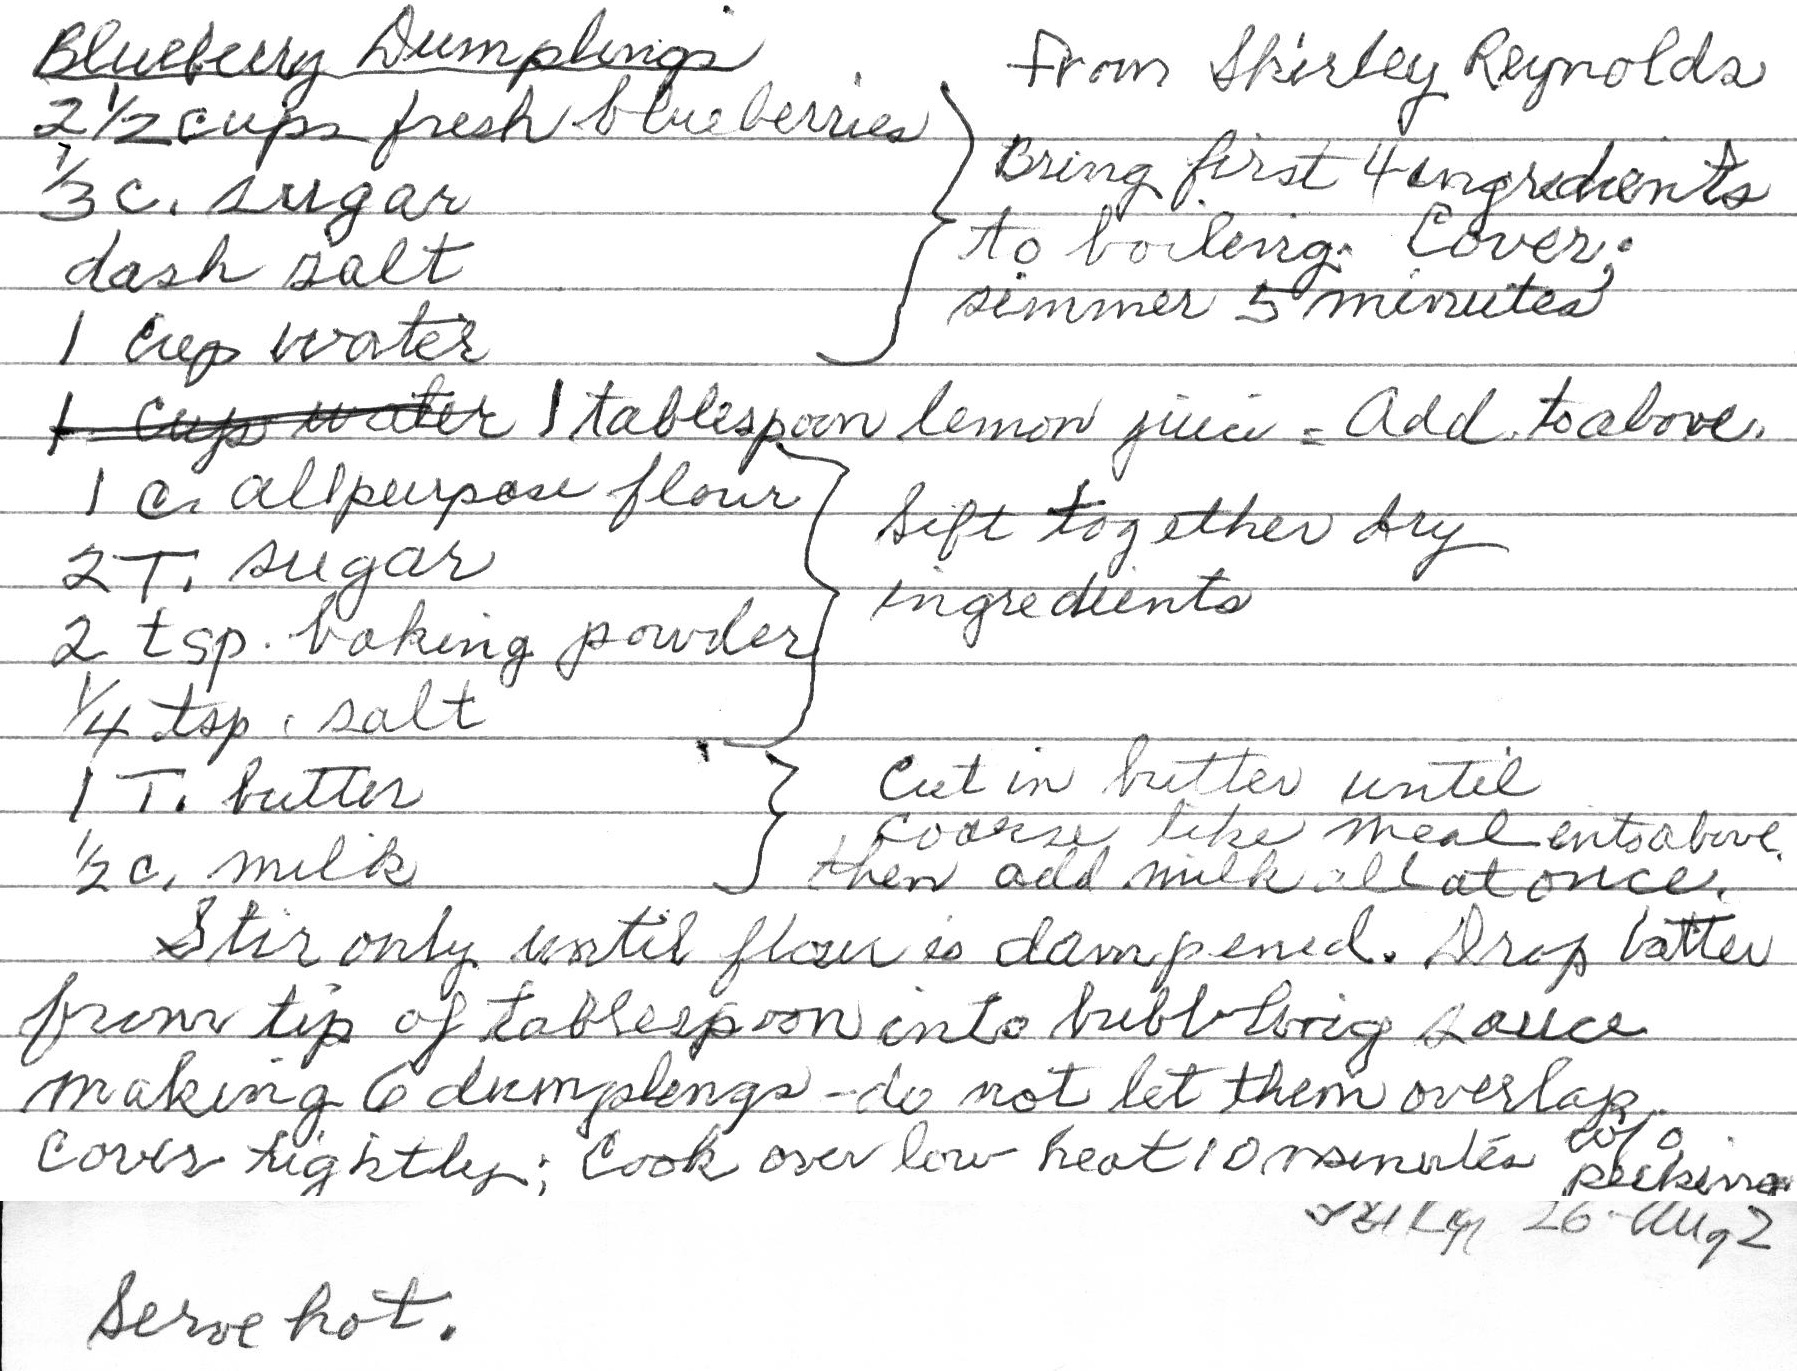 Blueberry Dumplings
From Shirley Reynolds
2 1/2 cups fresh blueberries
1/3 c. sugar
dash salt
1 cup water
Bring first 4 ingredients
to boiling. Cover;
simmer 5 minutes
1 cup water 1 tablespoon lemon juice = Add to above.
1 c. allpurpose flour
2 T. sugar
2 tsp. baking powder
1/4 tsp. salt
Sift together dry
ingredients
1 T. butter
1/2 c. milk
Cut in butter until
coarse like meal into above.
then add milk all at once.
Stir only until flour is dampened. Drop batter
from tip of tablespoon into bubbling sauce
making 6 dumplings - do not let them overlap.
Cover tightly; Cook over low heat 10 minutes w/o
peeking
26 Aug 2
Serve hot.